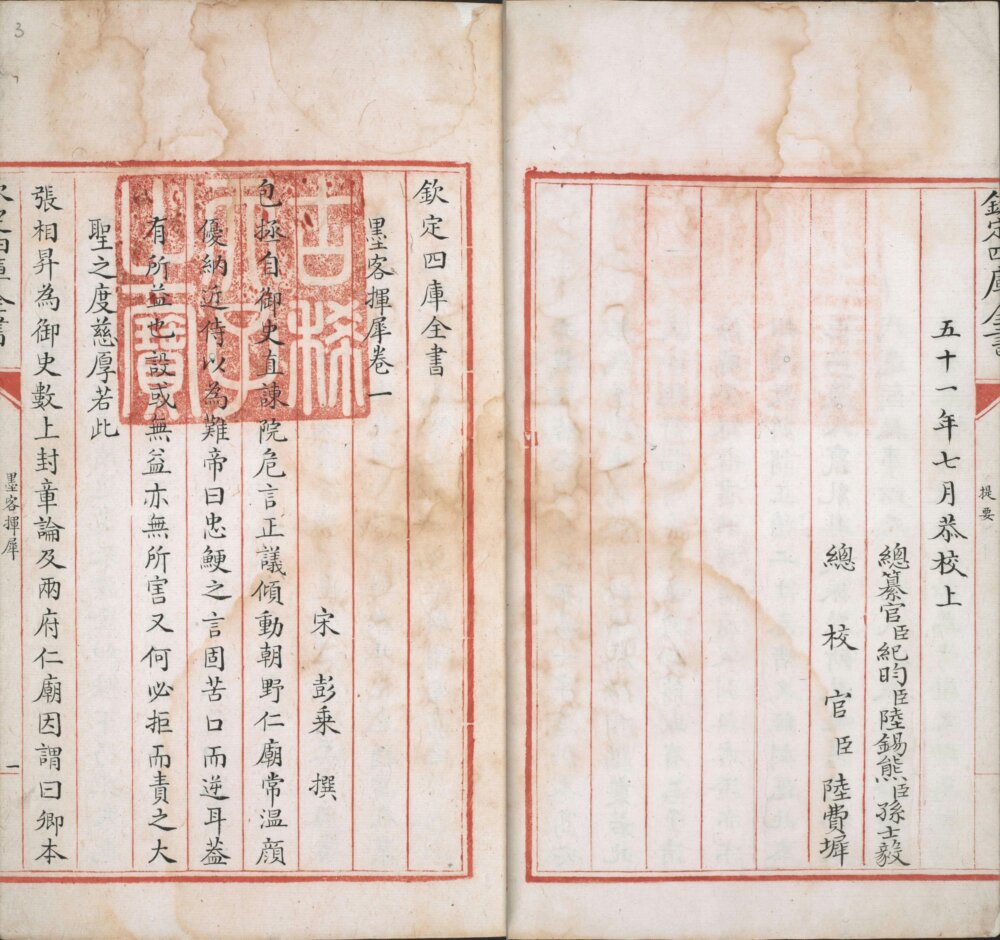 欽定四庫全書
提要
五十一年七月恭校上
總纂官臣紀昀臣陸錫熊臣孫士毅
總校官臣陸費墀
欽定四庫全書
墨客揮犀卷一
宋彭乘撰
包拯自御史直諫院危言正議傾動朝野仁廟常溫顔
優納近侍以為難帝曰忠鯁之言固苦口而逆耳葢
有所益也設或無益亦無所害又何必拒而責之大
聖之度慈厚若此
張相昇為御史數上封章論及兩府仁廟因謂曰卿本
欽定四庫全書
墨客揮犀
一
古稀
天子
之寶
3